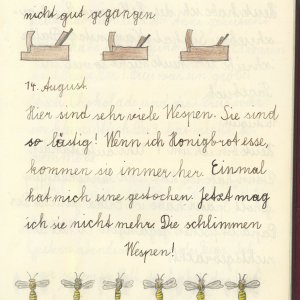 nicht gut gegangen.
14. August
Hier sind sehr viele Wespen. Sie sind
so lästig! Wenn ich Honigbrot esse,
kommen sie immer her. Einmal
hat mich eine gestochen. Jetzt mag
ich sie nicht mehr. Die schlimmen
Wespen!